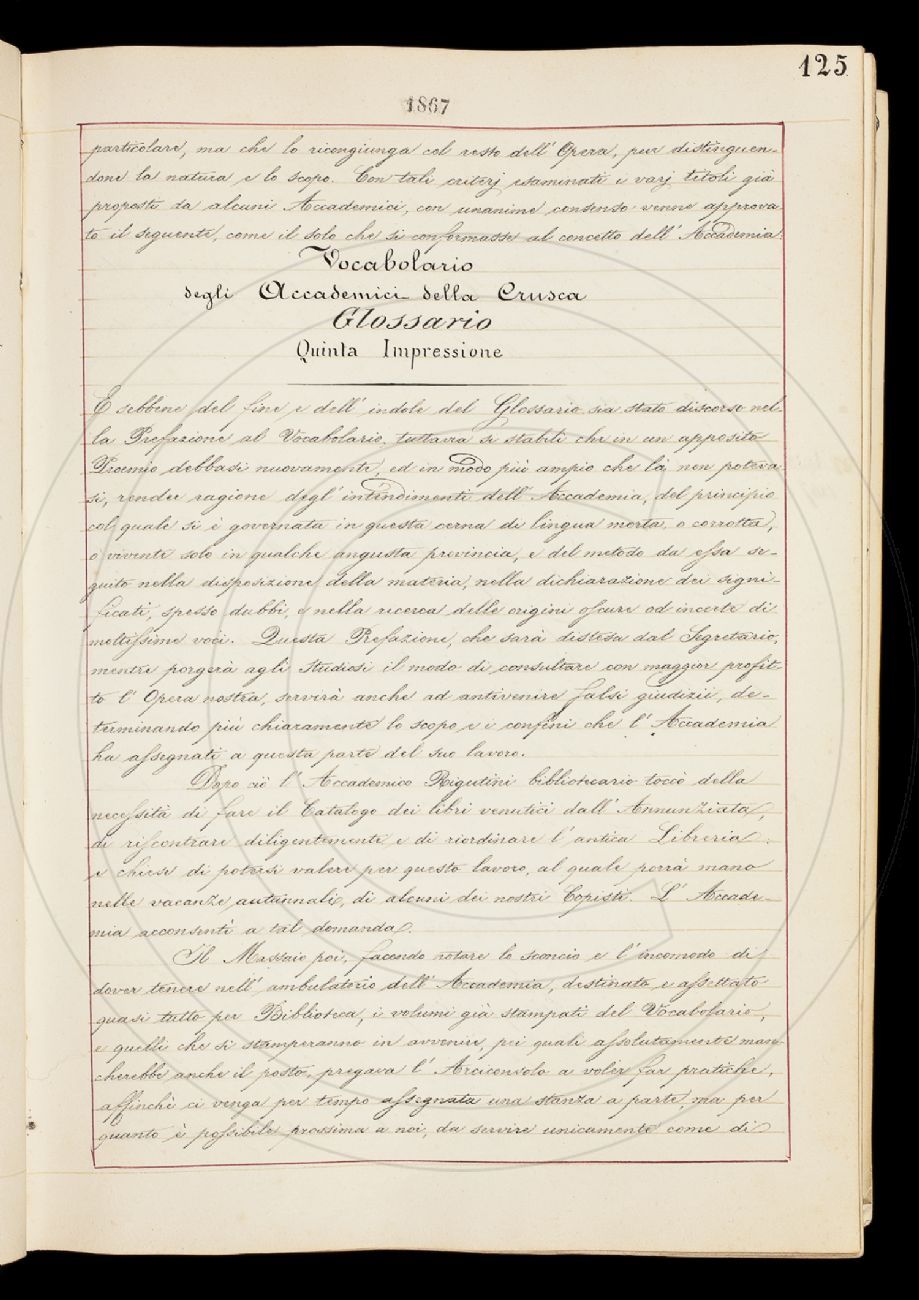 125
1867
particolare, ma che lo ricongiunga col resto dell' Opera, pur distinguen-
done la natura e lo scopo. Con tali criterj esaminati i varj titoli già
proposti da alcuni Accademici, con unanime consenso venne approva-
to il seguente, come il solo che si conformasse al concetto dell' Accademia:
Vocabolario
degli Accademici della Crusca
Glossario
Quinta Impressione
E sebbene del fine e dell' indole del Glossario sia stato discorso nel-
la Prefazione al Vocabolario, tuttavia si stabilì che in un apposito
Proemio debbasi nuovamente, ed in modo più ampio che là non poteva-
si, render ragione degl' intendimenti dell' Accademia, del principio
col quale si è governata in questa cerna di lingua morta, o corrotta,
o vivente solo in qualche angusta provincia, e del metodo da essa se-
guito nella disposizione della materia, nella dichiarazione dei signi-
ficati, spesso dubbi, e nella ricerca delle origini oscure od incerte di
moltissime voci. Questa Prefazione, che sarà distesa dal Segretario,
mentre porgerà agli Studiosi il modo di consultare con maggior profit-
to l' Opera nostra, servirà anche ad antivenire falsi giudizii, de-
terminando più chiaramente lo scopo e i confini che l' Accademia
ha assegnati a questa parte del suo lavoro.
Dopo ciò l' Accademico Rigutini bibliotecario toccò della
necessità di fare il Catalogo dei libri venutici dall' Annunziata,
di riscontrare diligentemente e di riordinare l' antica Libreria:
e chiese di potersi valere per questo lavoro, al quale porrà mano
nelle vacanze autunnali, di alcuni dei nostri Copisti. L' Accade-
mia acconsentì a tal domanda.
Il Massaio poi, facendo notare lo sconcio e l' incomodo di
dover tenere nell' ambulatorio dell' Accademia, destinato e assettato
quasi tutto per Biblioteca, i volumi già stampati del Vocabolario,
e quelli che si stamperanno in avvenire, pei quali assolutamente man-
cherebbe anche il posto, pregava l' Arciconsolo a voler far pratiche,
affinchè ci venga per tempo assegnata una stanza a parte, ma per
quanto è possibile prossima a noi, da servire unicamente come di